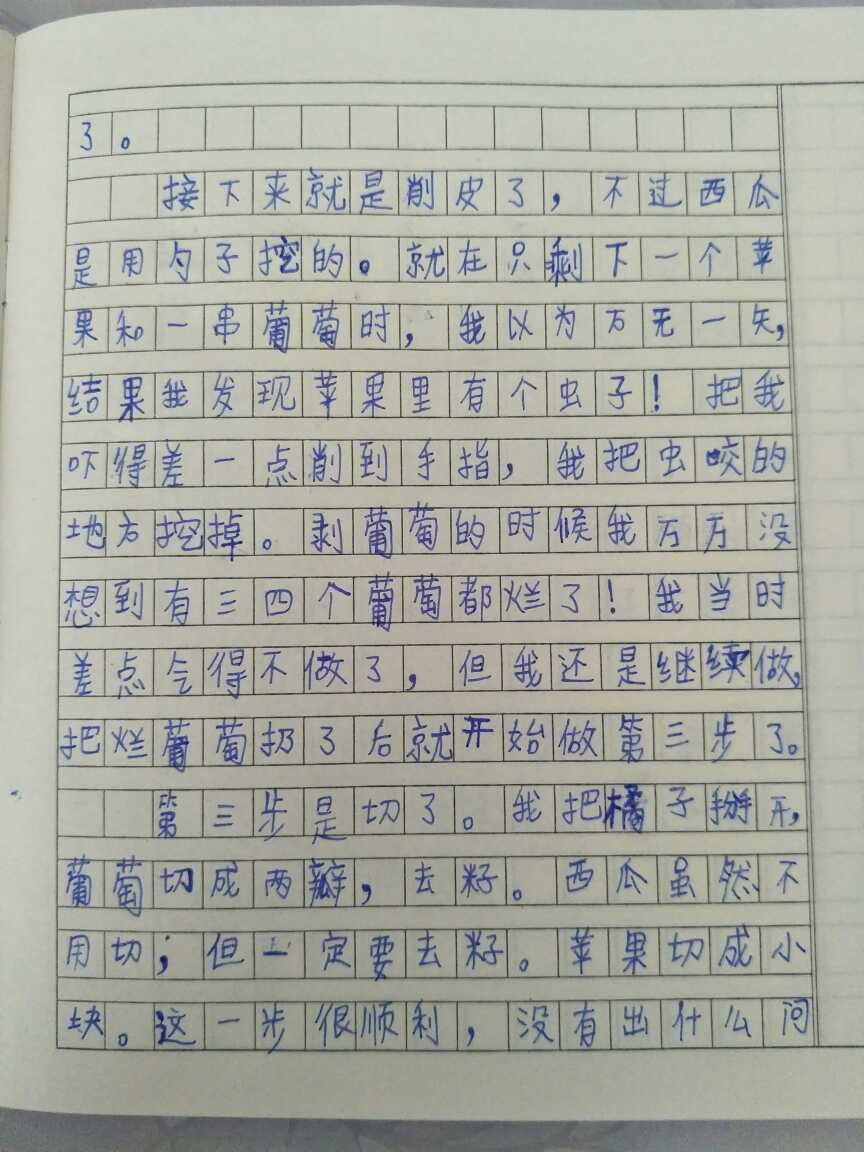 了。
接下来就是削皮了，不过西瓜
是用勺子挖的。就在只剩下一个苹
果和一串葡萄时，我以为万无一失，
结果我发现苹果里有个虫子！把我
吓得差一点削到手指，我把虫咬的
地方挖掉。剥葡萄的时候我万万没
想到有三四个葡萄都烂了！我当时
差点气得不做了，但我还是继续做，
把烂葡萄扔了后就开始做第三步了。
第三步是切了。我把橘子掰开，
葡萄切成两瓣，去籽。西瓜虽然不
用切；但一定要去籽。苹果切成小
块。这一步很顺利，没有出什么问